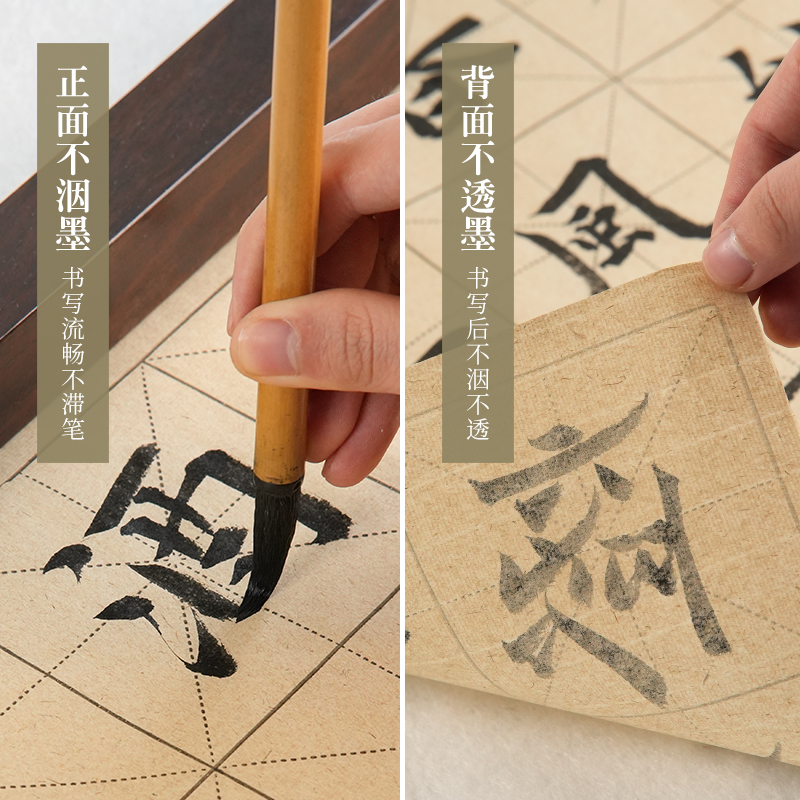 正面不洇墨
书写流畅不滞笔
背面不透墨
书写后不洇不透